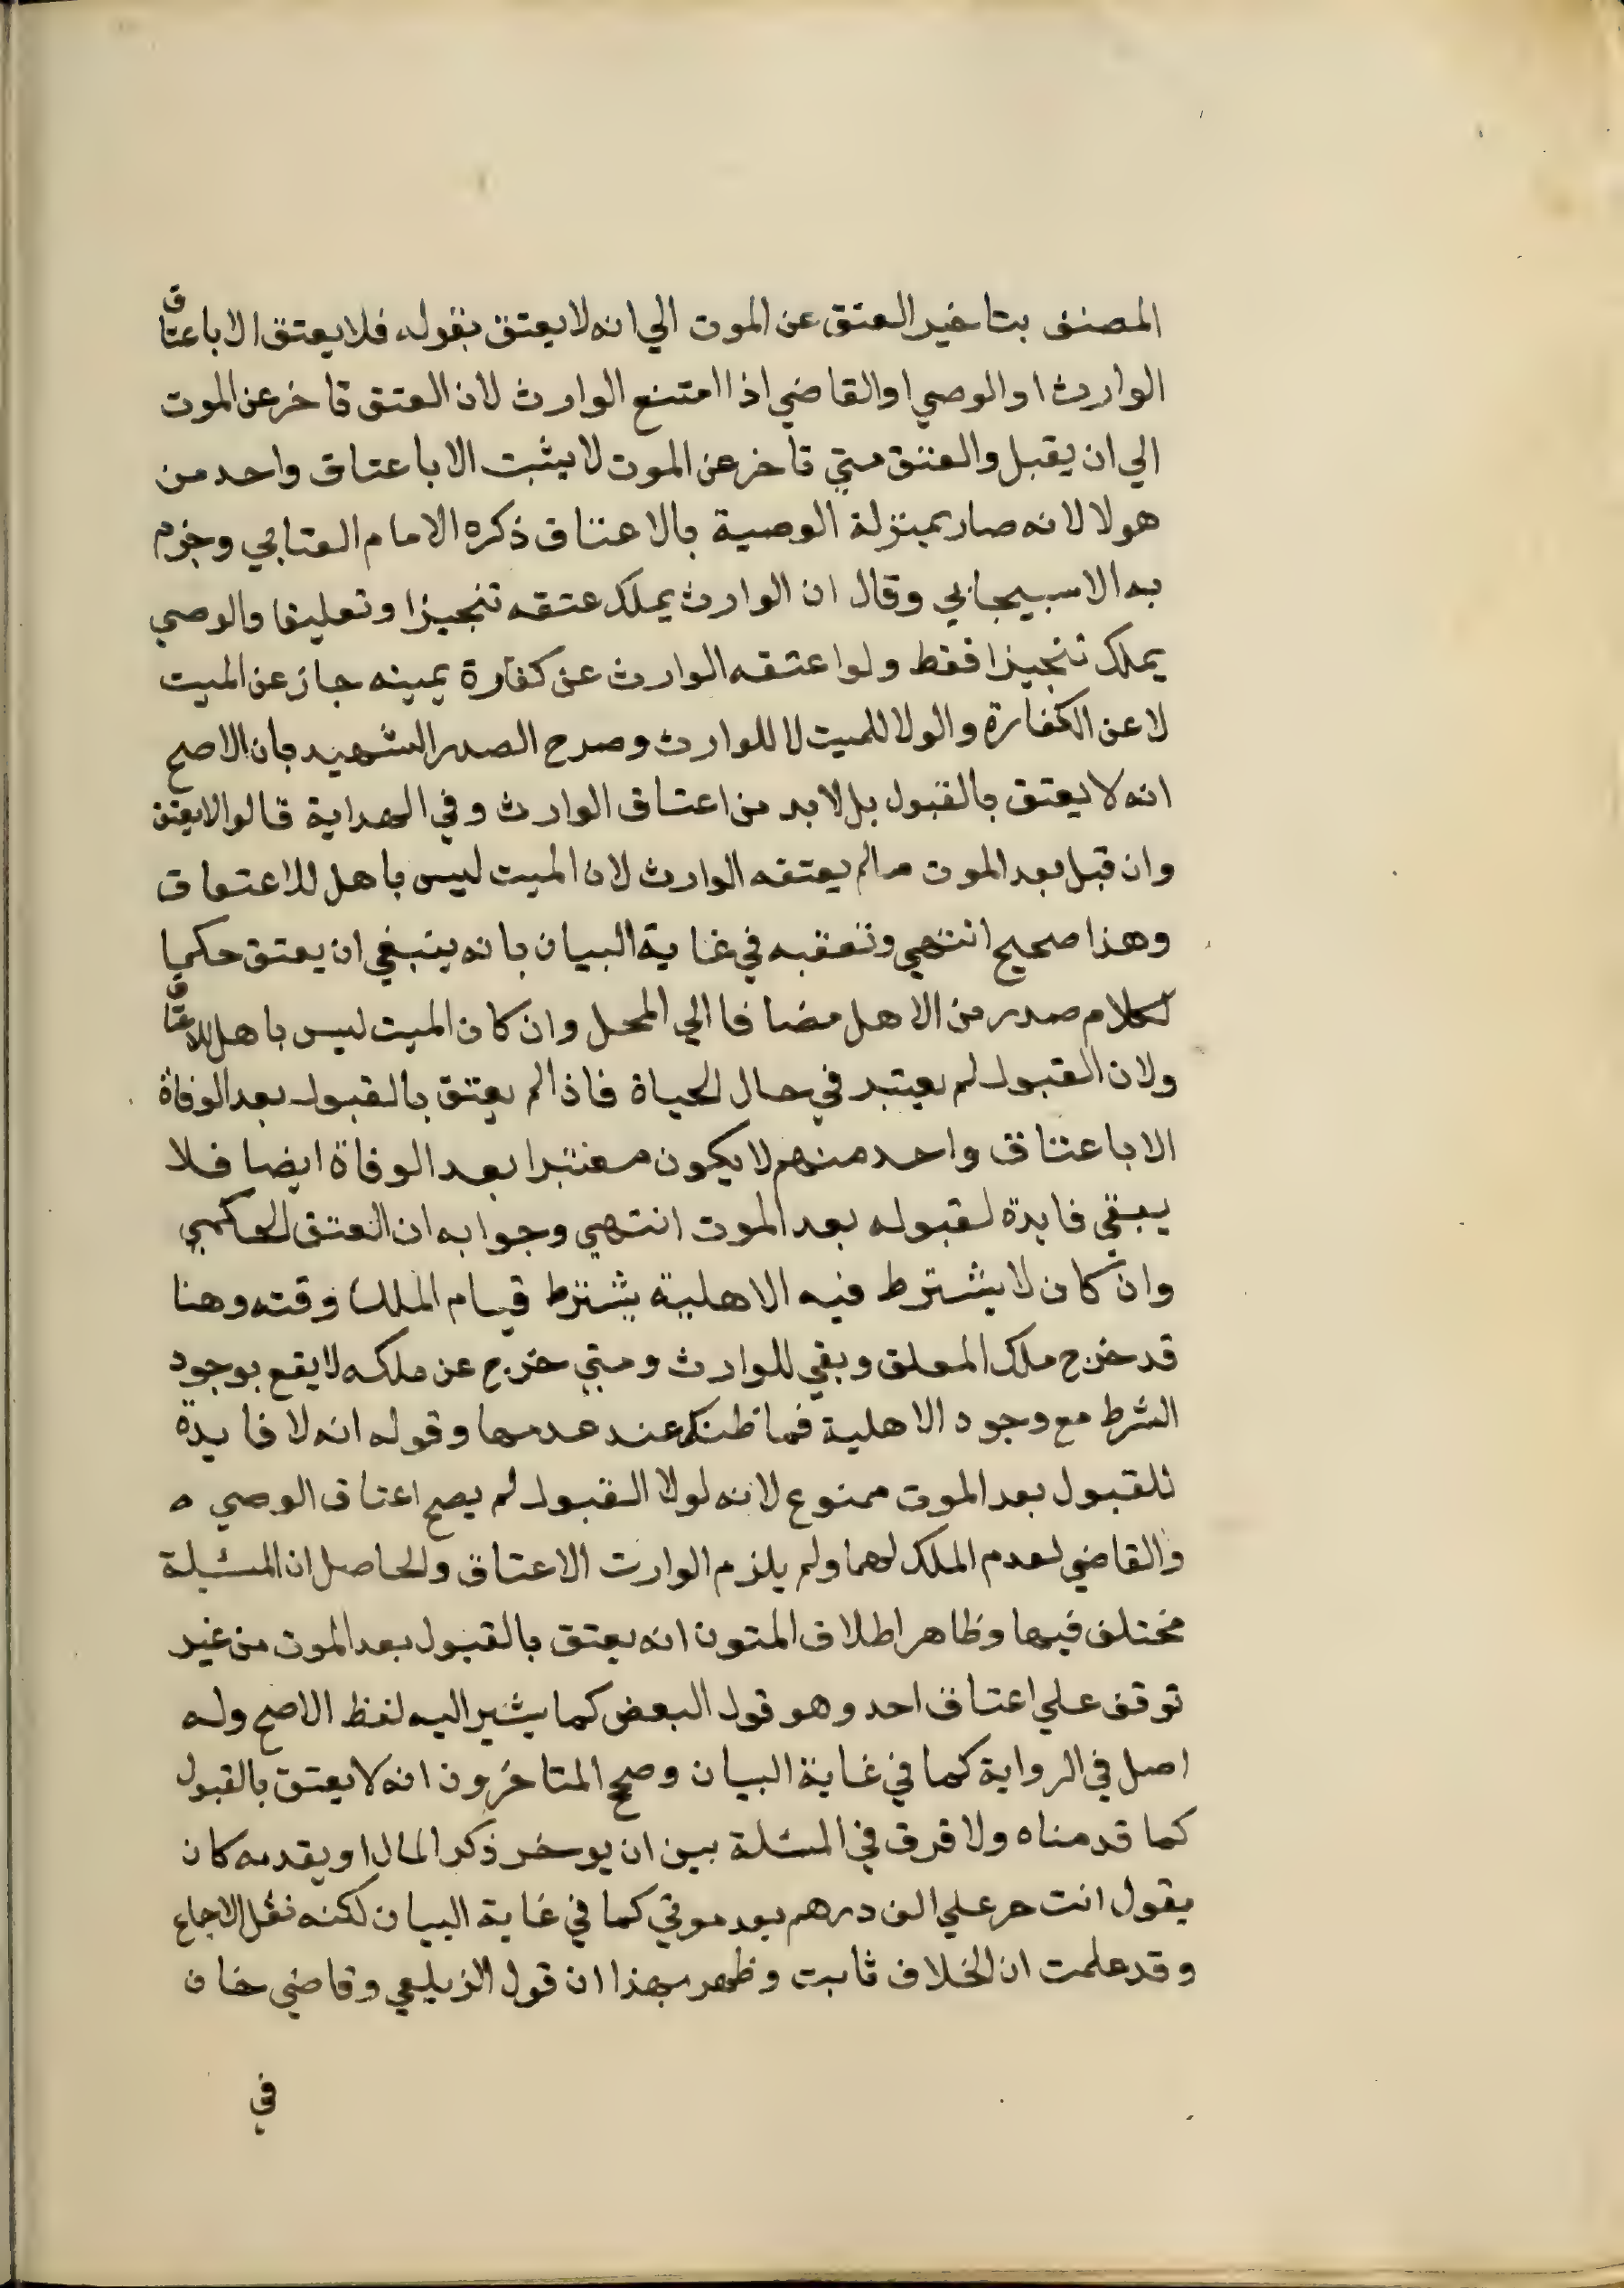 المصنف بتاخير العتق عن الموت الي انه لا يعتق بقوله فلا يعتق الا باعتاق
الوارث او الوصي او القاضي اذا امتنع الوارث لان العتق تاخر عن الموت
الي ان يقبل والعتق متي تاخر عن الموت لا يثبت الا باعتاق واحد من
هولا لانه صار بمنزلة الوصية بالاعتاق ذكره الامام العتابي وجزم
به الاسبيجابي وقال ان الوارث يملك عتقه تنجيزا وتعليقا والوصي
يملك تنجيزا فقط ولو اعتقه الوارث عن كفارة يمينه جاز عن الميت
لا عن الكفارة والولا للميت لا للوارث وصرح الصدر الشهيد بان الاصح
انه لا يعتق بالقبول بل لابد من اعتاق الوارث وفي الهداية قالوا لا يعتق
وان قبل بعد الموت مالم يعتقه الوارث لان الميت ليس باهل للاعتاق
وهذا صحيح انتهي وتعقبه في غاية البيان بانه ينبغي ان يعتق حكما
لكلام صدر من الاهل مضافا الي المحل وان كان الميت ليس باهل للاعتاق
ولان القبول لم يعتبر في حال الحياة فاذا لم يعتق بالقبول بعد الوفاة
الا باعتاق واحد منهم لا يكون معتبرا بعد الوفاة ايضا فلا
يبقي فايدة لقبوله بعد الموت انتهي وجوابه ان العتق الحكمي
وان كان لا يشترط فيه الاهلية يشترط قيام الملك وقته وهنا
قد خرج ملك المعلق وبقي للوارث ومتي خرج عن ملكه لا يقع بوجود
الشرط مع وجود الاهلية فما ظنك عند عدمها وقوله انه لا فايدة
للقبول بعد الموت ممنوع لانه لولا القبول لم يصح اعتاق الوصي ه
والقاضي لعدم الملك لهما ولم يلزم الوارث الاعتاق والحاصل ان المسئلة
مختلف فيها وظاهر اطلاق المتون انه يعتق بالقبول بعد الموت من غير
توقف علي اعتاق احد وهو قول البعض كما يشير اليه لفظ الاصح وله
اصل في الرواية كما في غاية البيان وصحح المتاخرون انه لا يعتق بالقبول
كما قدمناه ولا فرق في المسئلة بين ان يوخر ذكر المال او يقدمه كان
يقول انت حر علي الف درهم بعد موتي كما في غاية البيان لكنه نقل الاجماع
وقد علمت ان الخلاف ثابت وظهر بهذا ان قول الزيلعي وقاضي خان
في